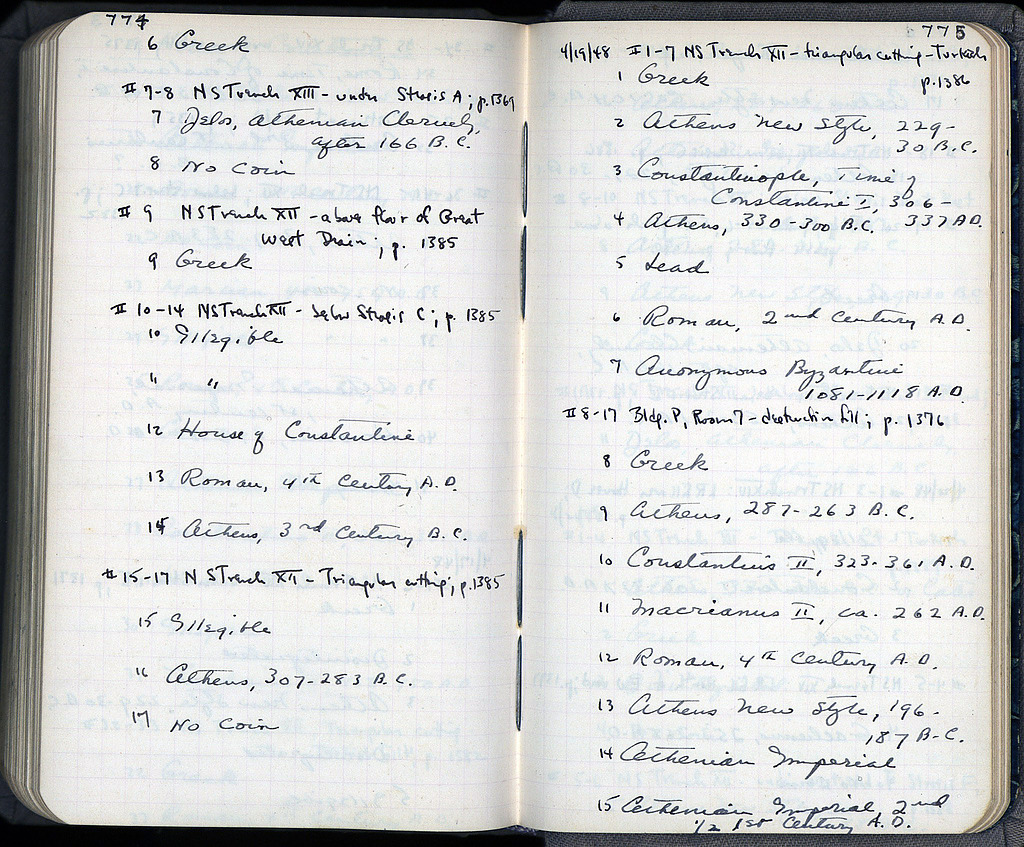 774
6 Greek
# 7-8 NS Trench XIII - under Strosis A; p. 1369
7 Delos, Athenian Cleruchy,
after 166 B.C.
8 No coin
# 9 NS Trench XII - above floor of Great
West Drain; p. 1385
9 Greek
# 10-14 NS Trench XII - below Strosis C; p. 1385
10 Illegible
" "
12 House of Constantine
13 Roman, 4th Century A.D.
14 Athens, 3rd Century B.C.
# 15-17 NS Trench XII - Triangular cutting; p. 1385
15 Illegible
16 Athens, 307-283 B.C.
17 No coin
775
4/19/48 # 1-7 NS Trench XII - triangular cutting - Turkish
p. 1386
1 Greek
2 Athens New Style, 229-
30 B.C.
3 Constantinople, Time of
Constantine I, 306-
337 A.D.
4 Athens, 330-300 B.C.
5 Lead
6 Roman, 2nd Century A.D.
7 Anonymous Byzantine
1081-1118 A.D.
# 8-17 Bldg. P, Room 7 - destruction fill; p. 1376
8 Greek
9 Athens, 287-263 B.C.
10 Constantius II, 323-361 A.D.
11 Macrianus II, ca. 262 A.D.
12 Roman, 4th Century A.D.
13 Athens New Style, 196-
187 B.C.
14 Athenian Imperial
15 Athenian Imperial, 2nd
1/2 1st Century A.D.